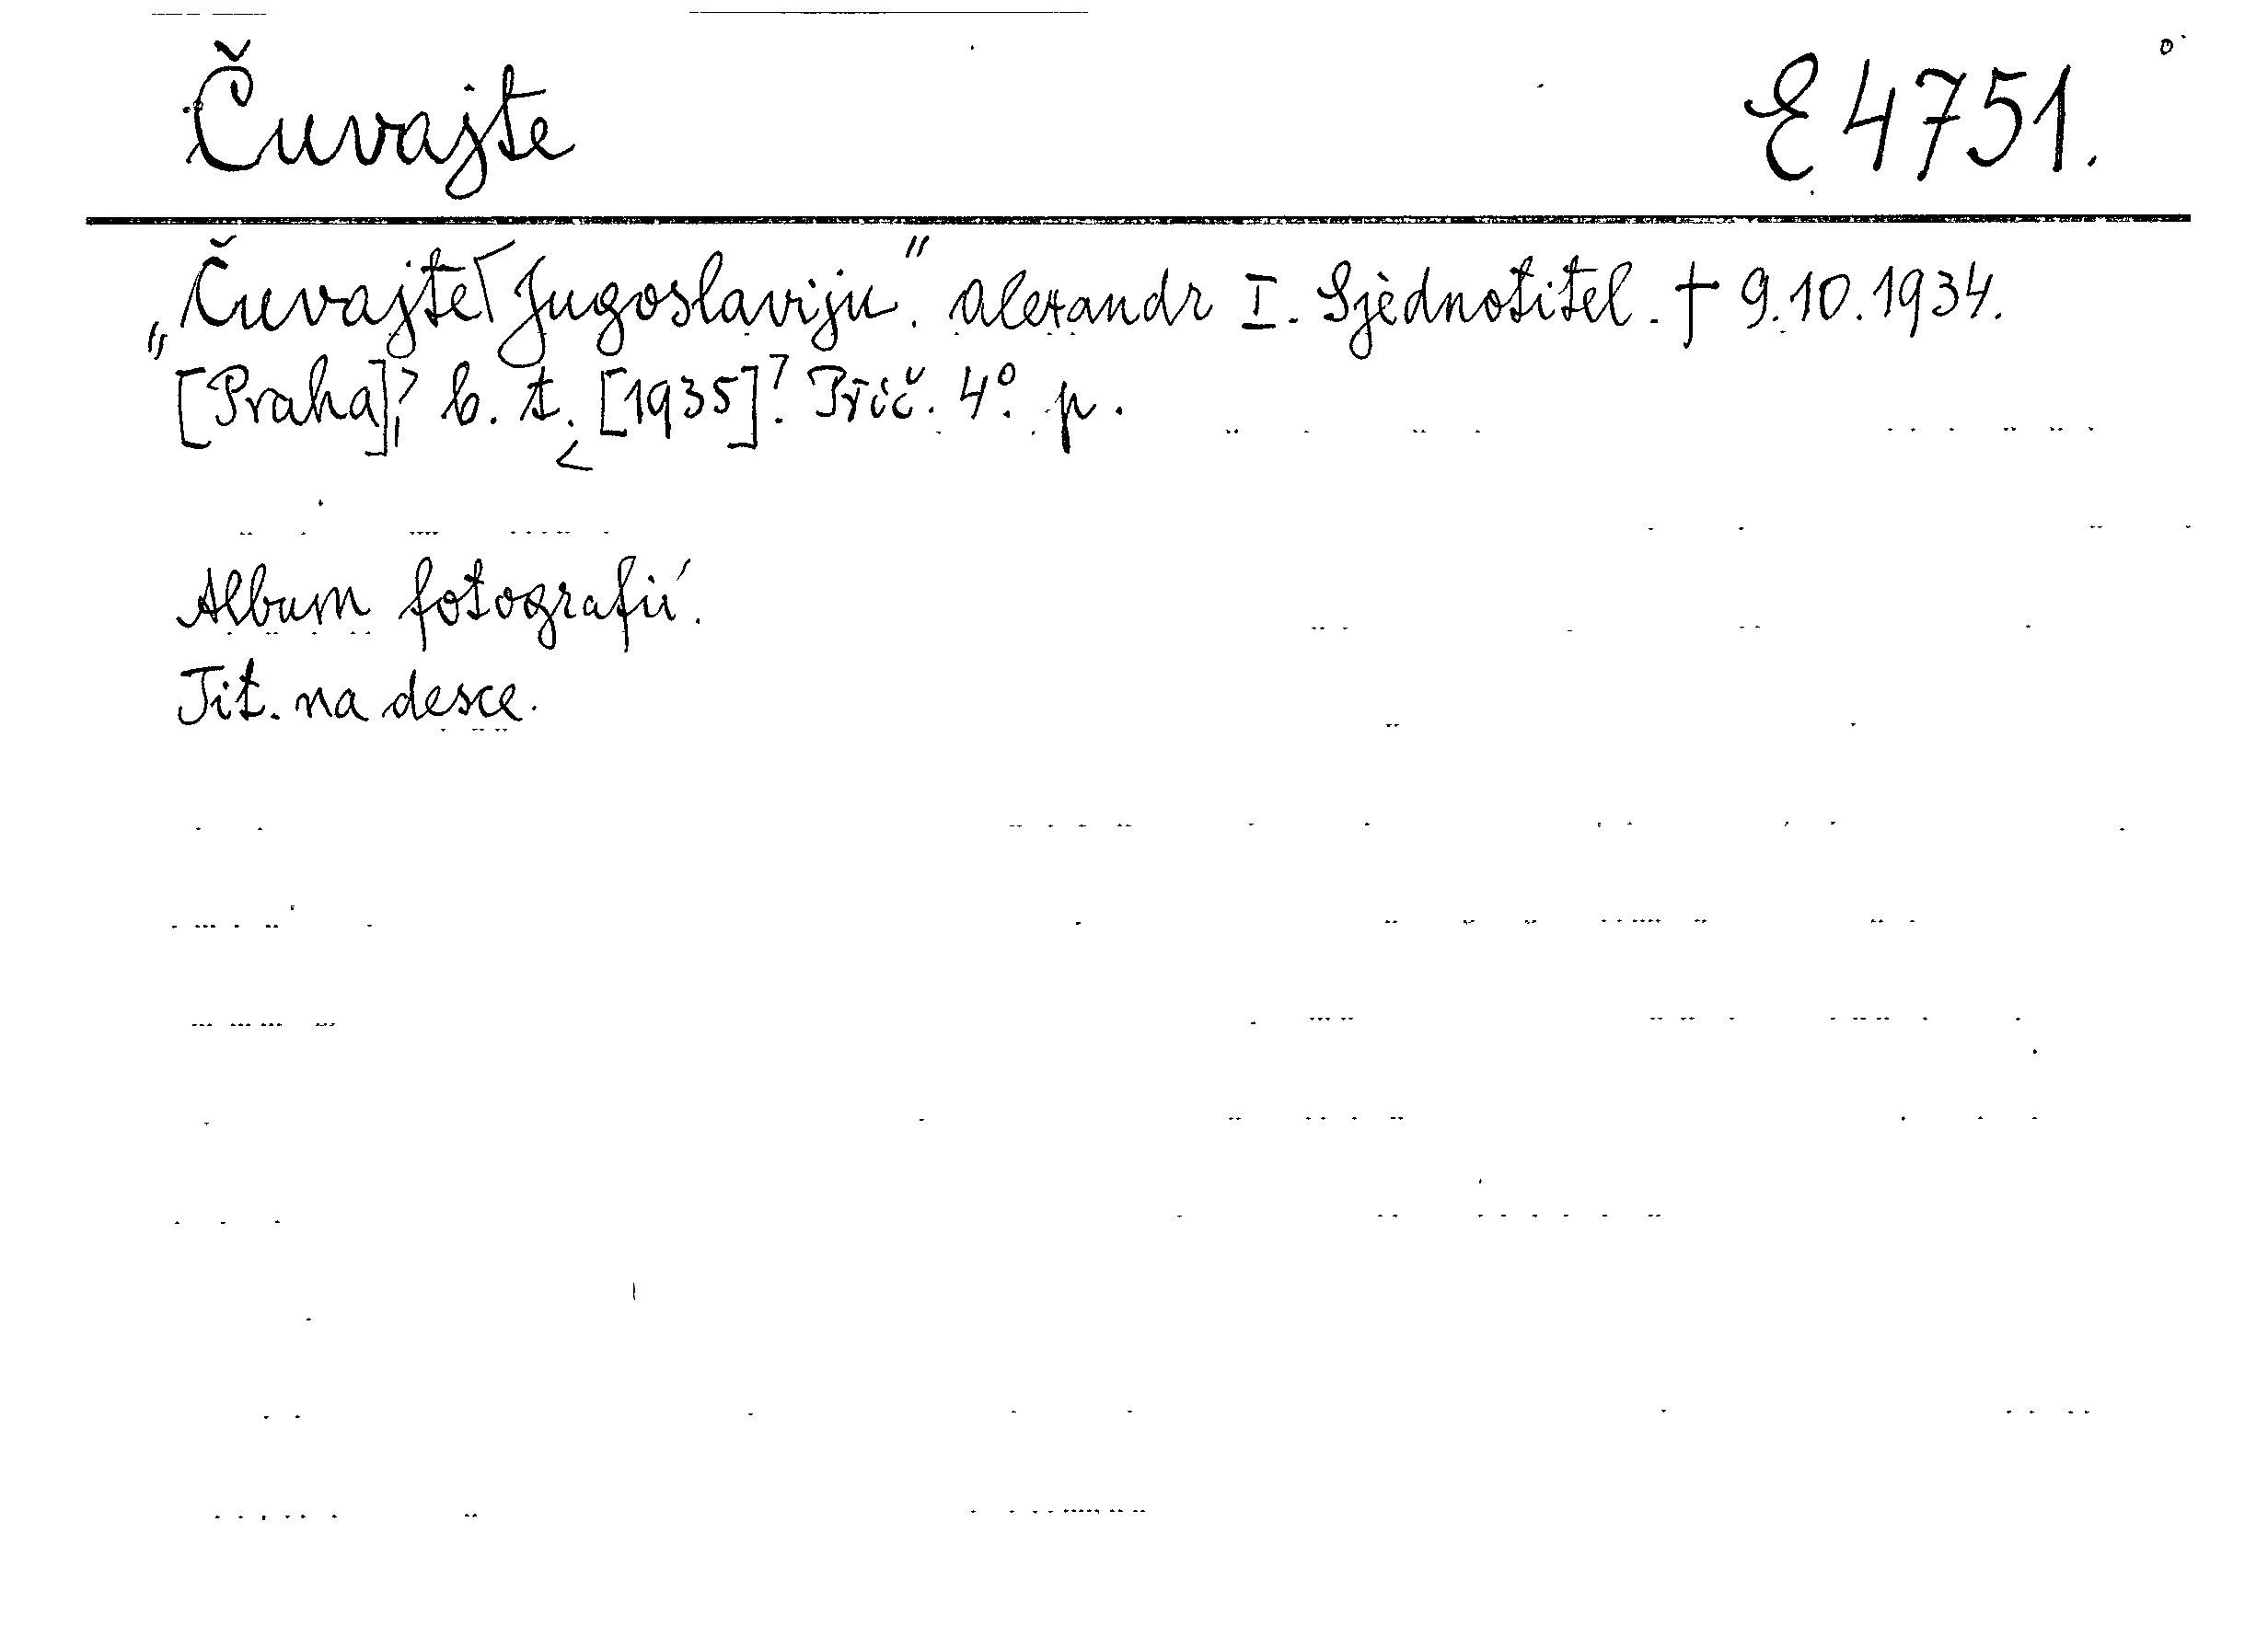 Čuvajte E 4751.
„Čuvajte Jugoslaviju". Alexandr I. Sjednotitel. † 9.10.1934.
[Praha]?, b. t. [1935]? Příč. 4°. p.
Album fotografií.
Tit. na desce.